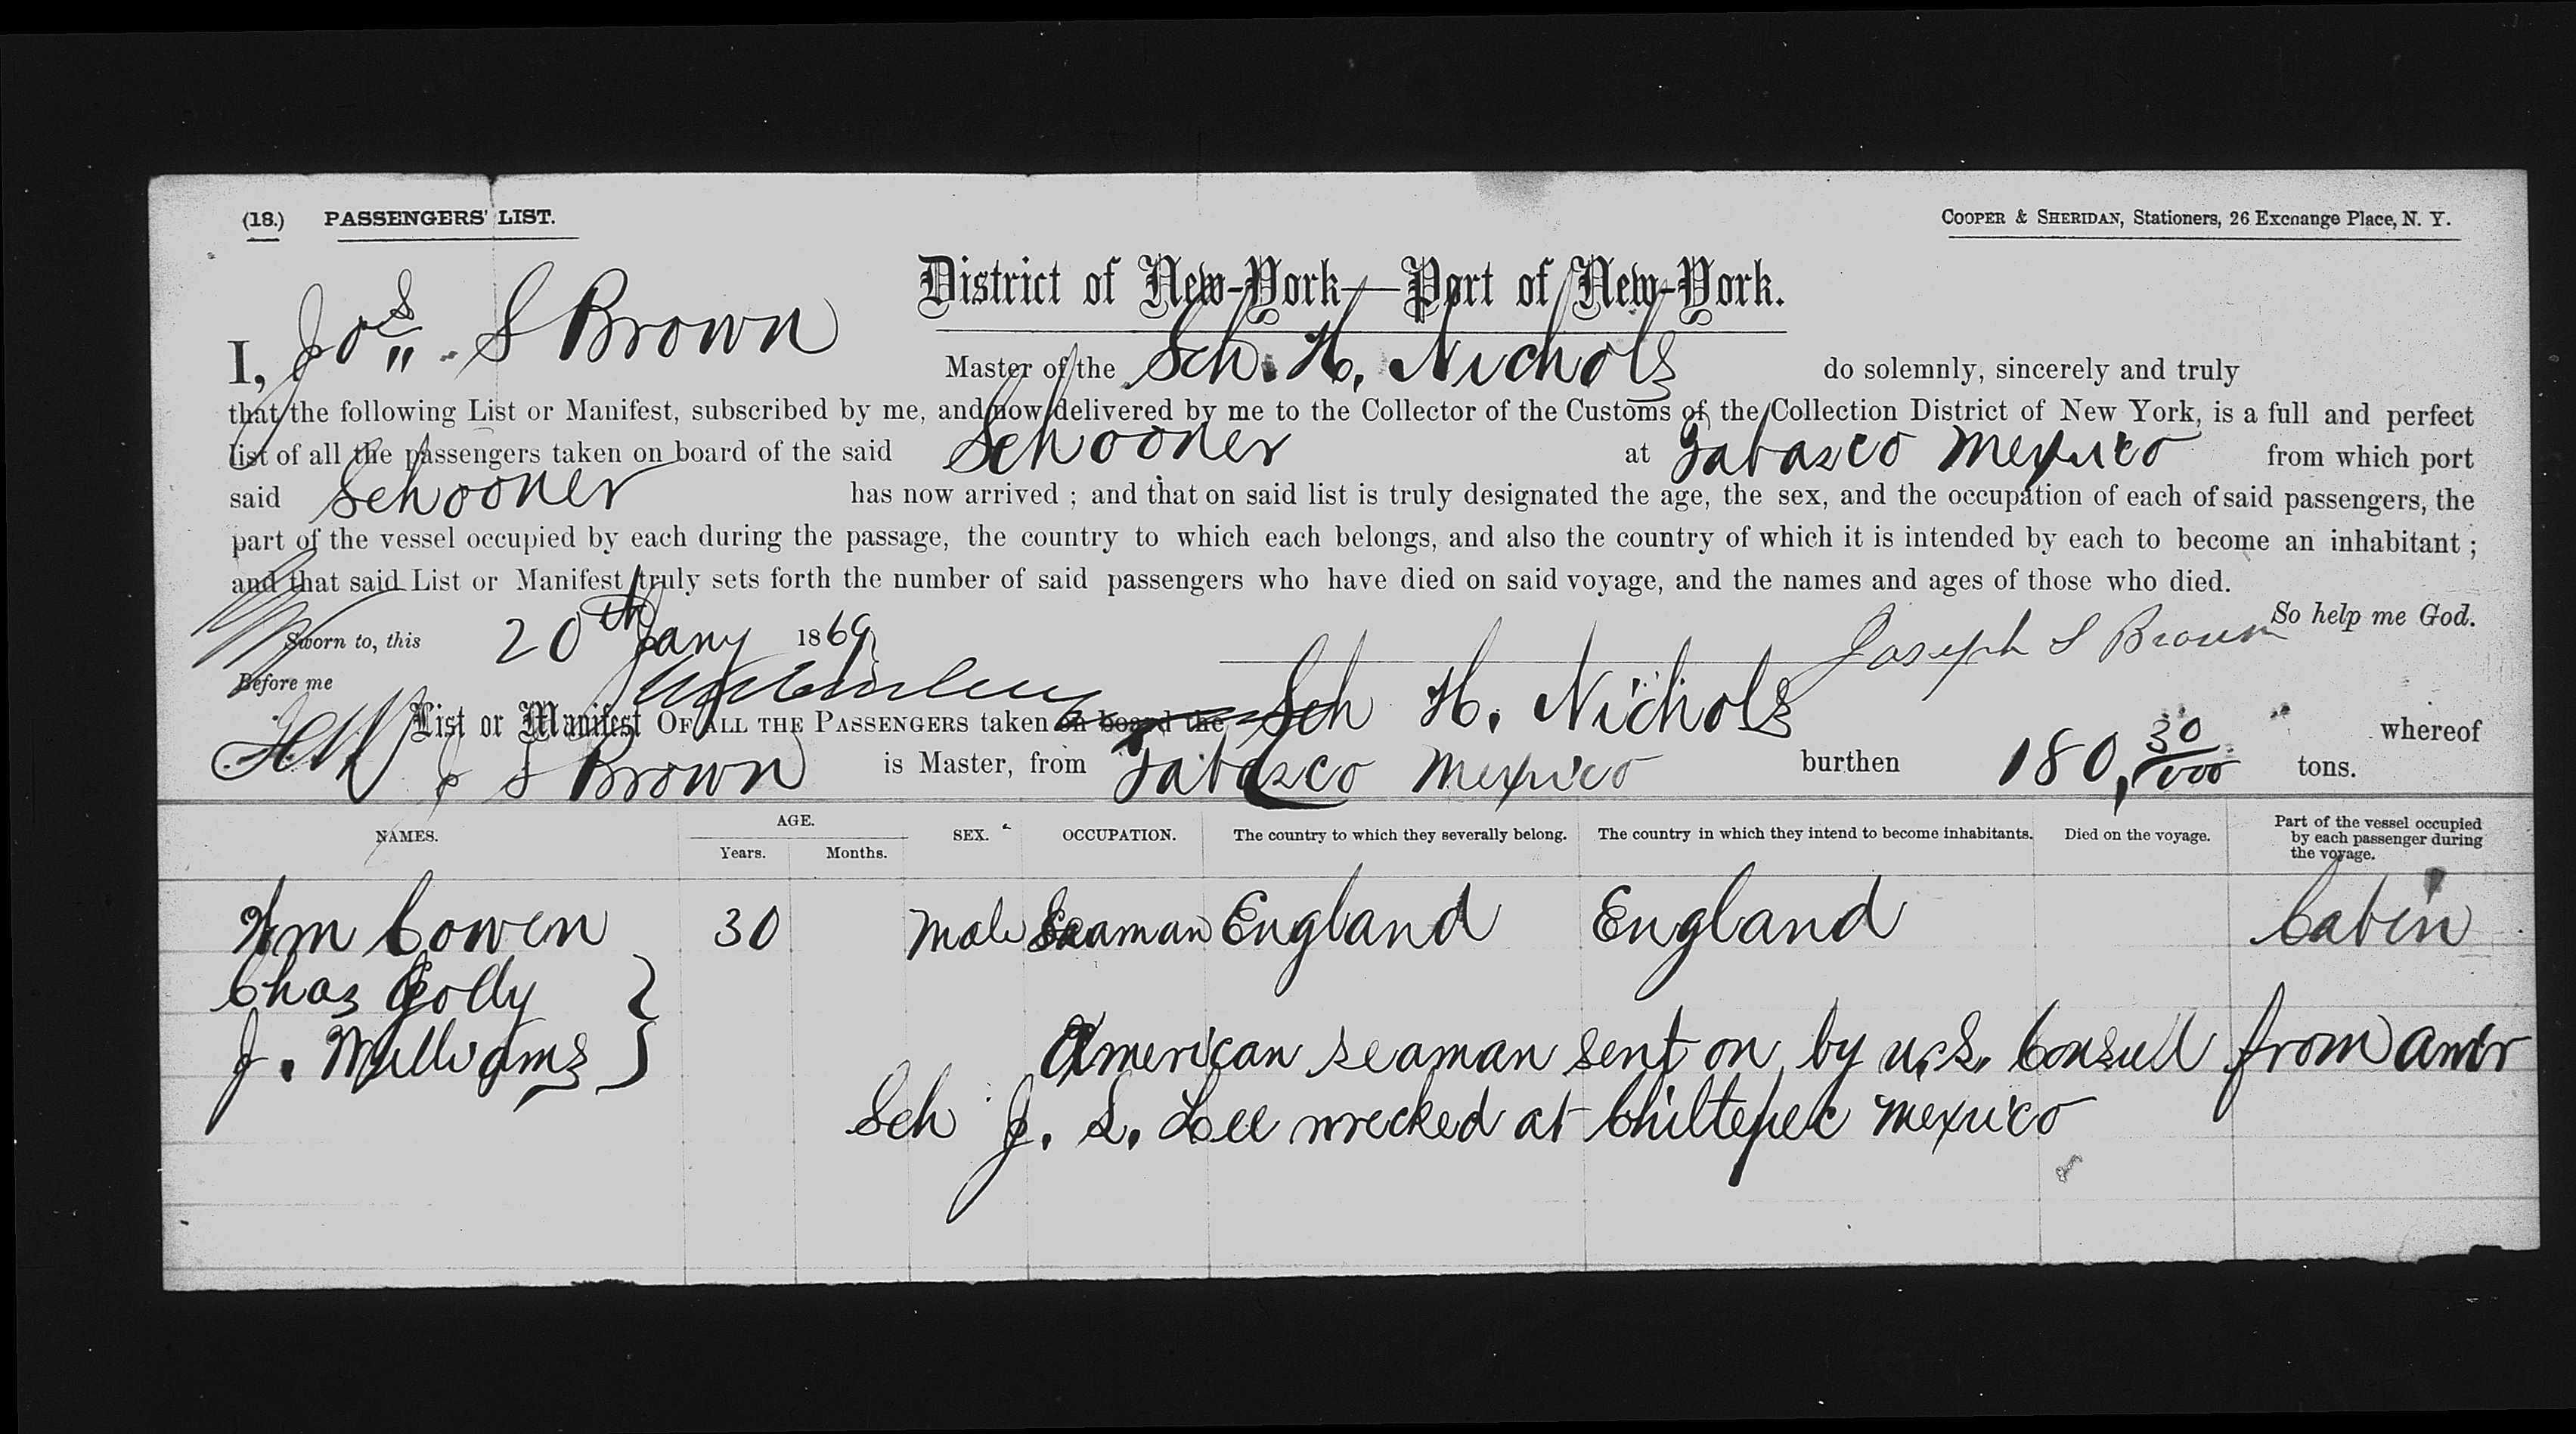 (18.) PASSENGERS' LIST. COOPER & SHERIDAN, Stationers, 26 Exchange Place, N. Y.
District of New-York—Port of New-York.
I, Jos. S Brown Master of the Sch. H. Nichols do solemnly, sincerely and truly
that the following List or Manifest, subscribed by me, and now delivered by me to the Collector of the Customs of the Collection District of New York, is a full and perfect
list of all the passengers taken on board of the said Schooner at Tabasco Mexico from which port
said Schooner has now arrived ; and that on said list is truly designated the age, the sex, and the occupation of each of said passengers, the
part of the vessel occupied by each during the passage, the country to which each belongs, and also the country of which it is intended by each to become an inhabitant ;
and that said List or Manifest truly sets forth the number of said passengers who have died on said voyage, and the names and ages of those who died.
So help me God.
Sworn to, this 20th Jany 1869 Joseph S Brown
Before me
List or Manifest OF ALL THE PASSENGERS taken on board the Sch H. Nichols whereof
J S Brown is Master, from Tabasco Mexico burthen 180, 30/100 tons.
NAMES. AGE. Years. Months. SEX. OCCUPATION. The country to which they severally belong. The country in which they intend to become inhabitants. Died on the voyage. Part of the vessel occupied by each passenger during the voyage.
Wm Cowen 30 Male Seaman England England Cabin
Chas Golly }
J. Williams } American seaman sent on by U.S. Consul from Amer
Sch J. S. Lee wrecked at Chiltepec Mexico